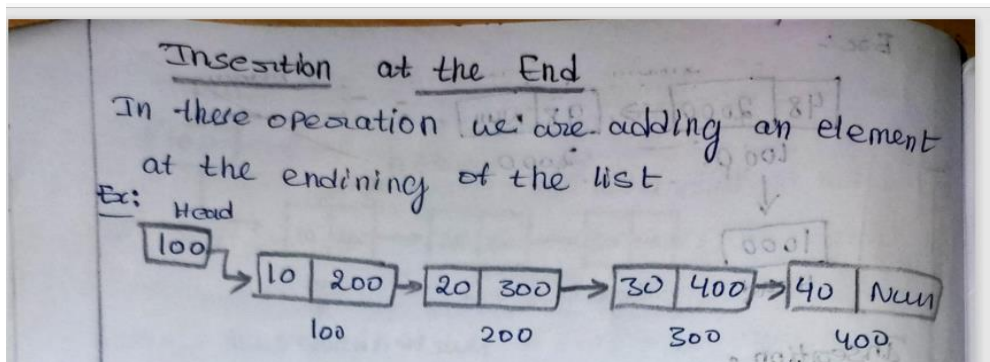 Insertion at the End
In there operation we are adding an element
at the endining of the list
Ex:
Head
100
10 200 20 300 30 400 40 Null
100 200 300 400